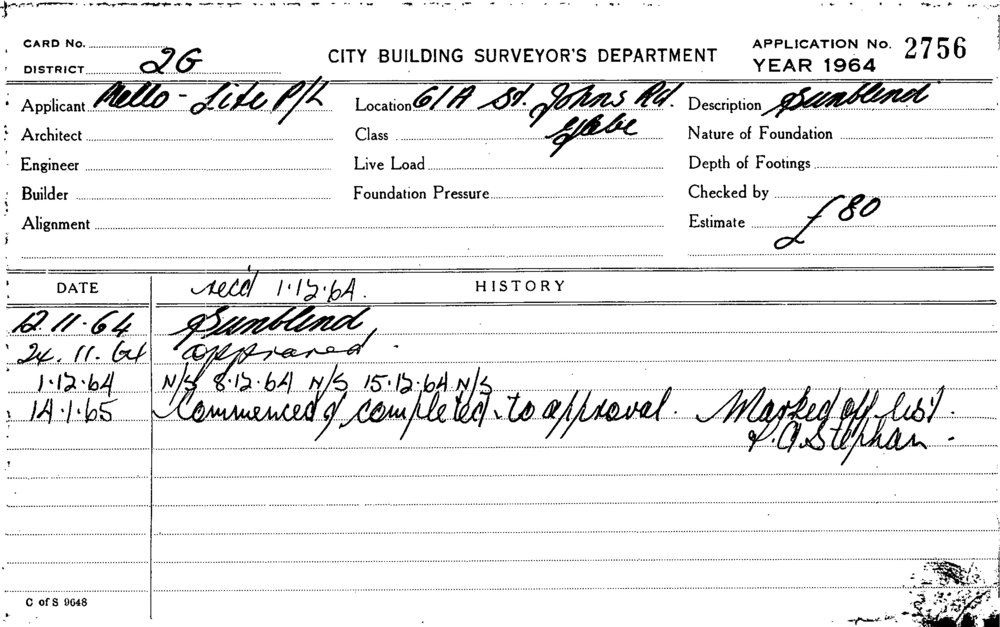 CARD No.
DISTRICT 2G
CITY BUILDING SURVEYOR'S DEPARTMENT
APPLICATION No. 2756
YEAR 1964
Applicant Mello-Lite P/L
Location 61A St. Johns Rd. Glebe
Description Sunblend
Architect
Class
Nature of Foundation
Engineer
Live Load
Depth of Footings
Builder
Foundation Pressure
Checked by
Alignment
Estimate £80
DATE
HISTORY
recd 1.12.64.
12.11.64 Sunblend
24.11.64 approved.
1.12.64 N/S 8.12.64 N/S 15.12.64 N/S
14.1.65 Commenced & completed to approval. Marked off list.
P.A. Stephan.
C of S 9648